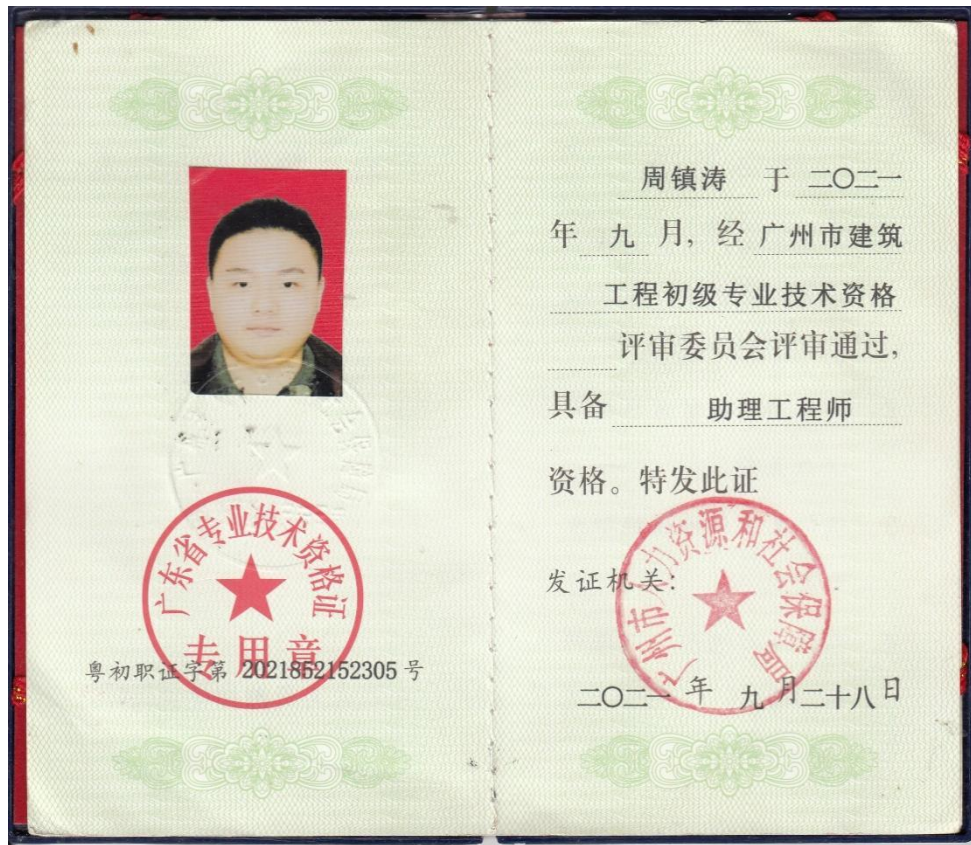 广东省专业技术资格证
专用章
粤初职证字第 2021852152305 号
周镇涛 于 二〇二一
年 九 月, 经 广州市建筑
工程初级专业技术资格
评审委员会评审通过,
具备 助理工程师
资格。特发此证
发证机关:
广州市人力资源和社会保障局
二〇二一 年 九 月二十八日